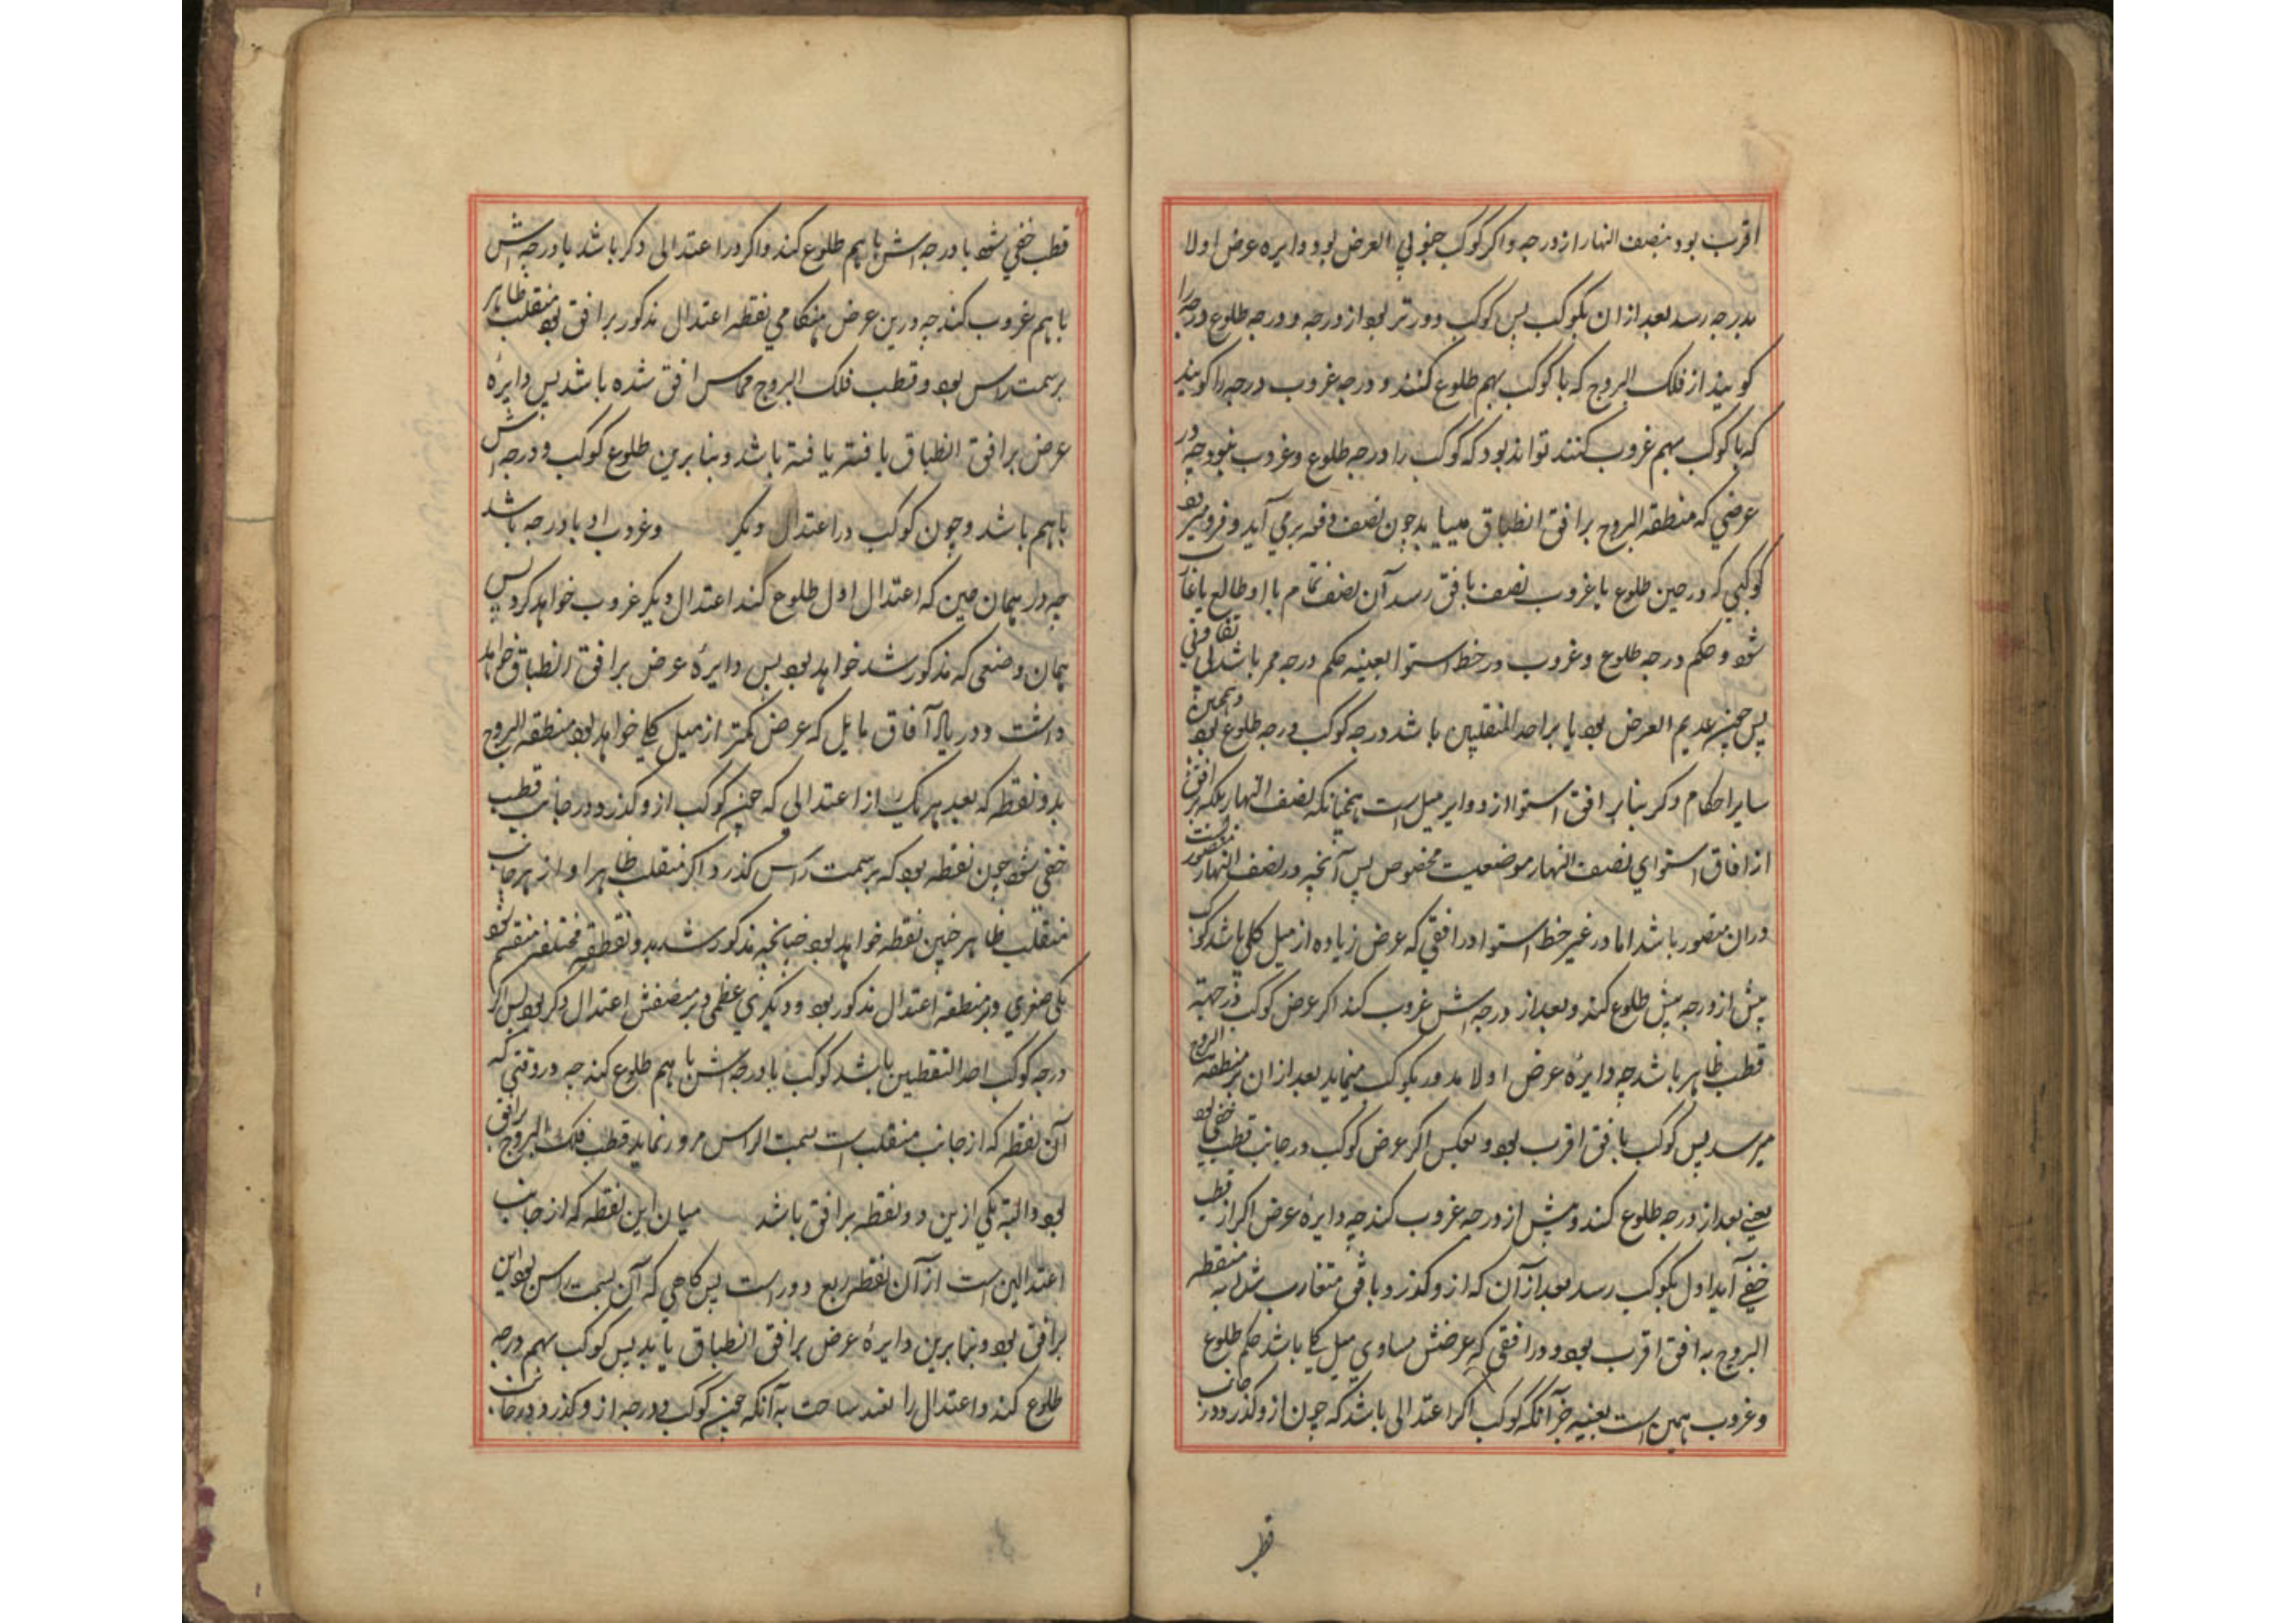 اقرب بود بنصف النهار از درجه و اگر کوکب جنوبی العرض بود دایره عرض اولا
بدرجه رسد بعد از ان بکوکب پس کوکب دورتر بود از درجه و درجه طلوع درجه را
کویند از فلک البروج که با کوکب بهم طلوع کنند و درجه غروب درجه را کویند
که با کوکب بهم غروب کنند تواند بود که کوکب را درجه طلوع و غروب نبود چه در
عرضی که منطقة البروج بر افق انطباق مییابد چون نصف دفعه برمی آید و فرو میرود
کوکبی که در حین طلوع یا غروب نصف بافق رسد آن نصف تمام با او طالع یا غارب
شود و حکم درجه طلوع و غروب در خط استوا بعینه حکم درجه ممر باشد بی تفاوتی
پس چون عدیم العرض بود یا بر احد المنقلبین باشد درجه کوکب درجه طلوع بود و همچنین
سایر احکام دکر بنابر افق استوا از دوایر میل است همچنانکه نصف النهار بلکه هر افق
از افاق استوای نصف النهار موضعیست مخصوص پس آنچه در نصف النهار متصور نیست
دران متصور باشد اما در غیر خط استوا در افقی که عرض زیاده از میل کلی باشد کوکب
پیش از درجه پیش طلوع کند و بعد از درجه اش غروب کند اکر عرض کوکب در جهة
قطب ظاهر باشد چه دایرهٔ عرض اولا بدور بکوکب مینماید بعد از ان بر منطقة البروج
میرسد پس کوکب بافق اقرب بود و بعکس اکر عرض کوکب در جانب قطب خفی بود
یعنی بعد از درجه طلوع کند و پیش از درجه غروب کند چه دایرهٔ عرض اکر از قطب
خفی آید اول بکوکب رسد بعد از آن که از و کذرد و بافق متقارب شد به منطقة
البروج به افق اقرب بود و در افقی که عرضش مساوی میل کلی باشد حکم طلوع
و غروب همین است بعینه جز آنکه کوکب اکر اعتدالی باشد که چون از و کذرد در جانب
قطب
قطب خفی شود با درجه اش باهم طلوع کند و اکر در اعتدالی دکر باشد با درجه اش
باهم غروب کند چه درین عرض هنکامی نقطه اعتدال مذکور بر افق بود منقلب ظاهر
بر سمت راس بود و قطب فلک البروج مماس افق شده باشد پس دایرهٔ
عرض بر افق انطباق یافته یافته باشد و بنابرین طلوع کوکب و درجه اش
باهم باشد و چون کوکب در اعتدال دیکر وغروب او با درجه باشد
چه در همان حین که اعتدال اول طلوع کند اعتدال دیکر غروب خواهد کرد پس
همان وضعی که مذکور شد خواهد بود پس دایرهٔ عرض بر افق انطباق خواهد
داشت و در باقی آفاق مایل که عرض کمتر از میل کلی خواهد بود منطقة البروج
بدو نقطه که بعد هر یک از اعتدالی که چون کوکب از و کذرد در جانب قطب
خفی شود چون نقطه بود که بر سمت راس کذرد و اکر منقلب ظاهر او از هر جانب
منقلب ظاهر چنین نقطه خواهد بود چنانچه مذکور شد بدو نقطه مختلف منقسم شود
یکی صغری و بر منطقه اعتدال مذکور بود و دیکری عظمی و بر منتصفش اعتدال دکر بود پس اکر
درجه کوکب احد النقطین باشد کوکب با درجه اش باهم طلوع کند چه در وقتی که
آن نقطه که از جانب منقلب است بسمت الراس مرور نماید قطب فلک البروج بر افق
بود والبته یکی ازین دو نقطه بر افق باشد میان این نقطه که از جانب
اعتدالین است از آن نقطه ربع دور است پس کاهی که آن بسمت راس بود این
بر افق بود و بنابرین دایرهٔ عرض بر افق انطباق یابد پس کوکب بهم درجه
طلوع کند و اعتدال را به آنکه چون کوکب و درجه از و کذرد در جانب